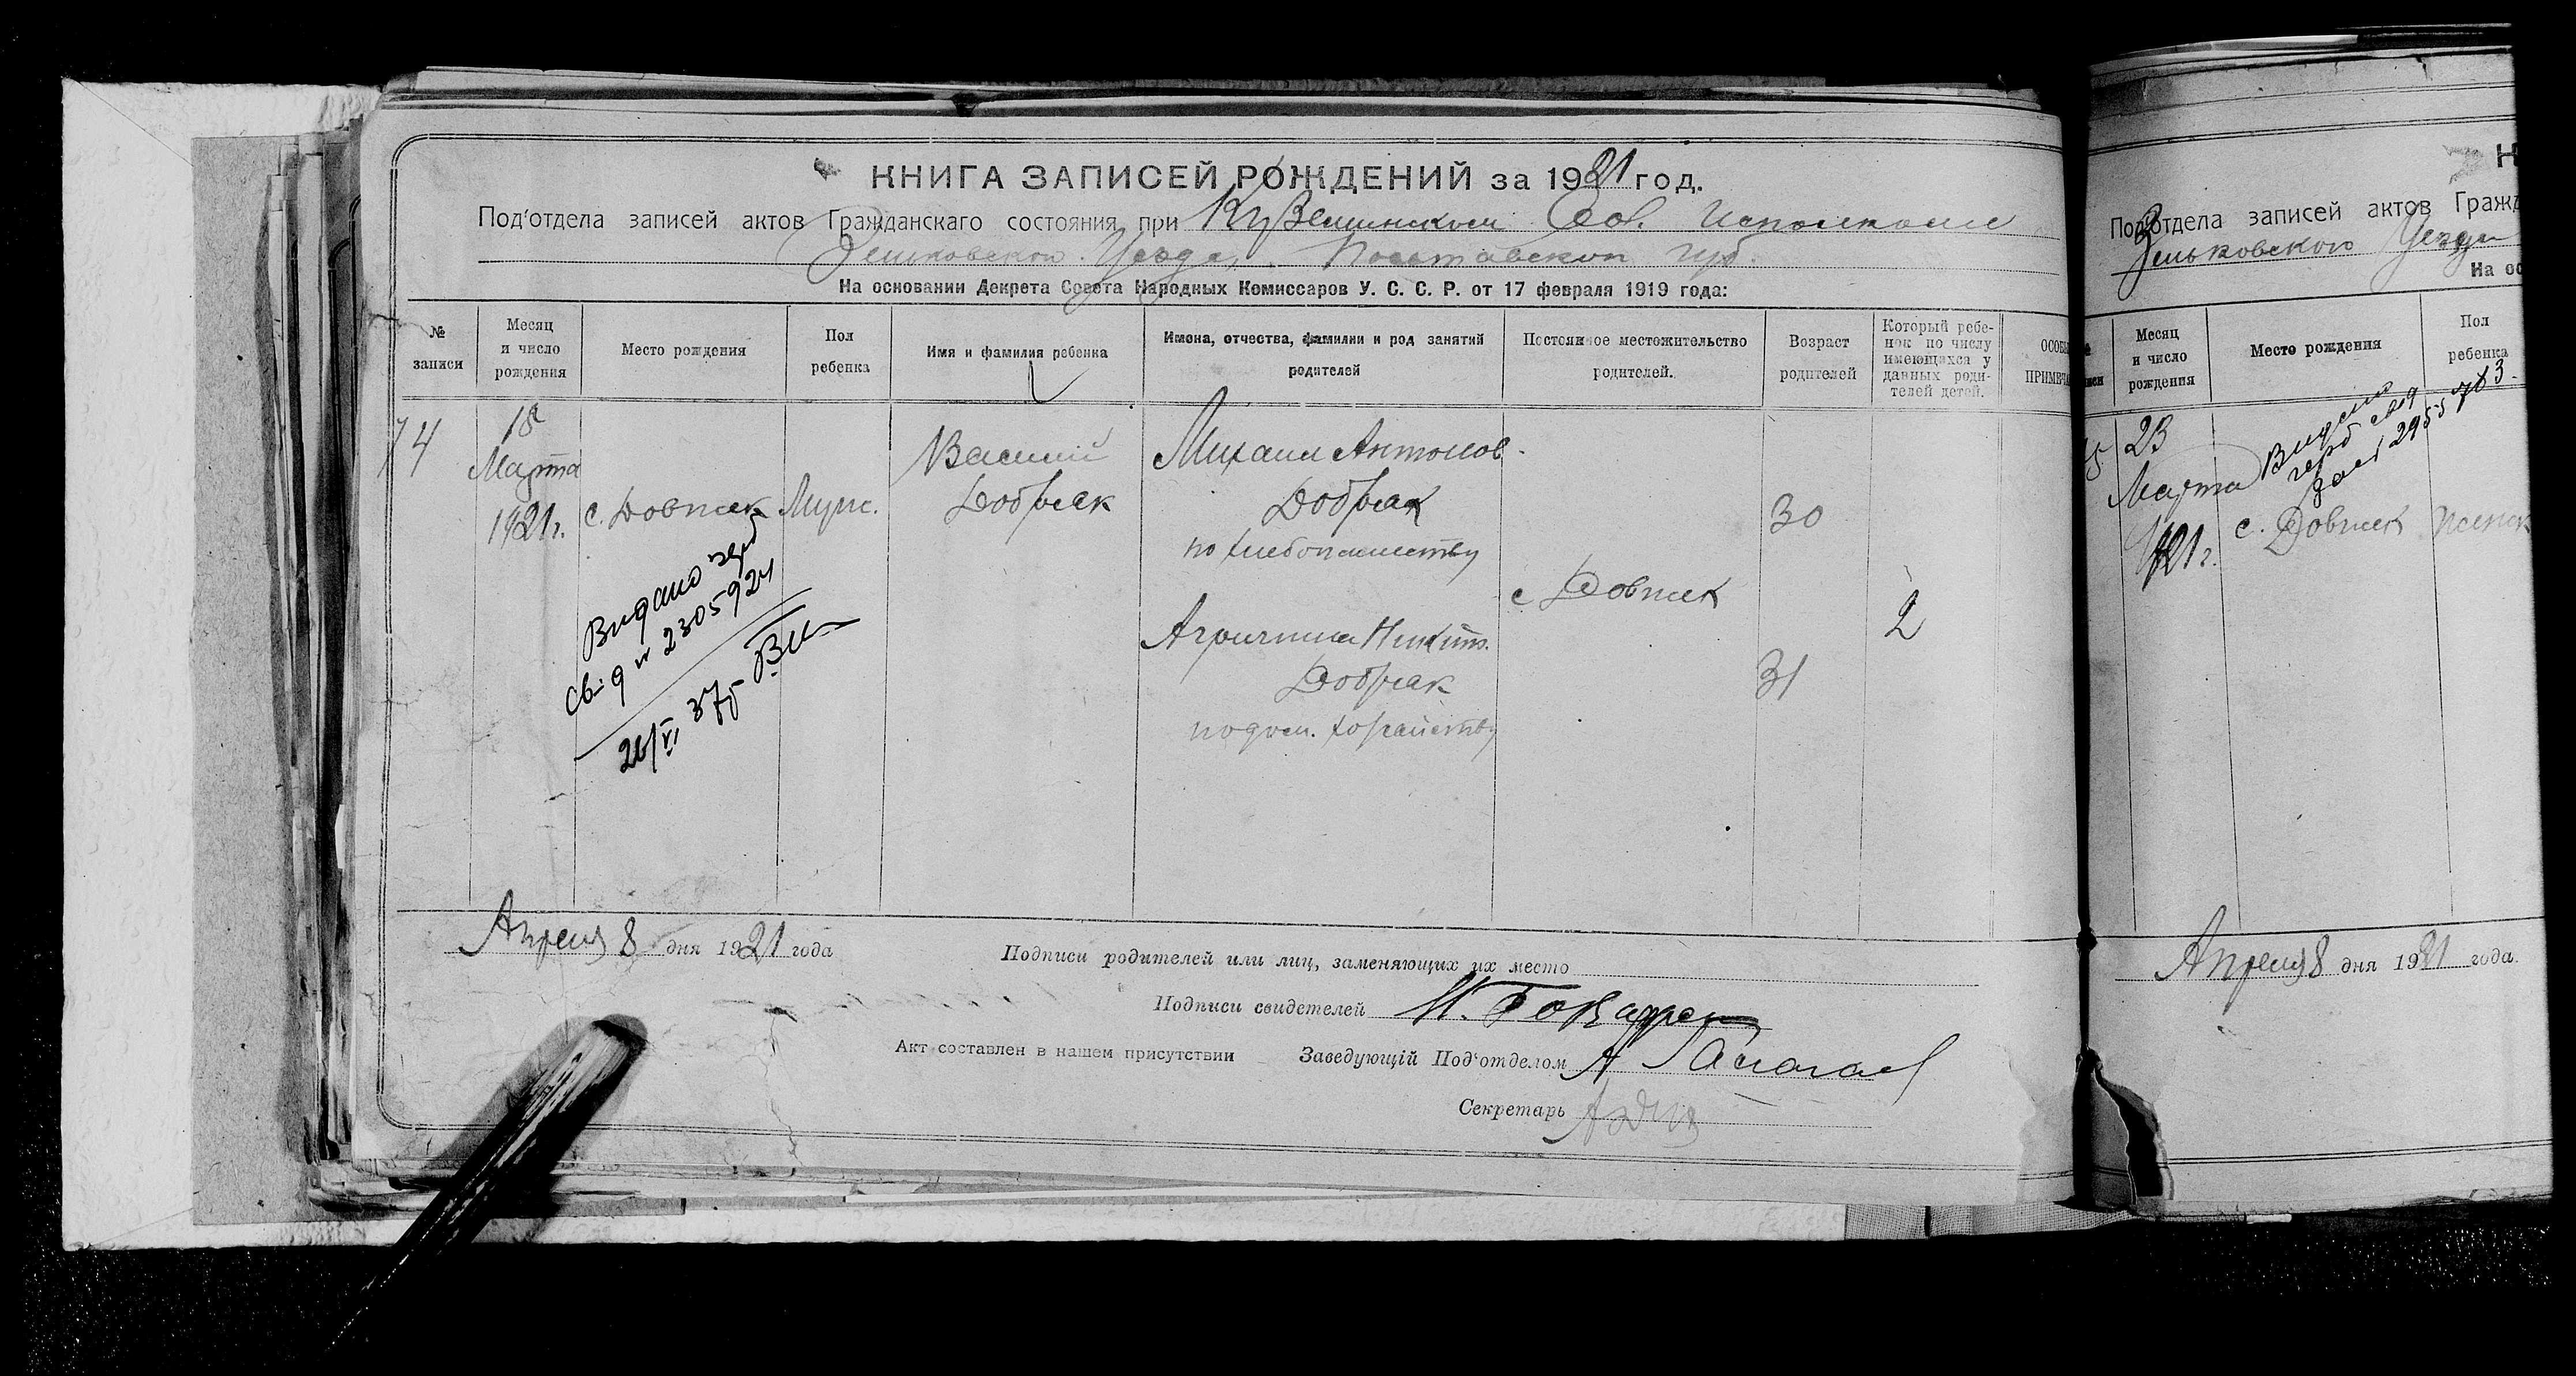 КНИГА ЗАПИСЕЙ РОЖДЕНИЙ за 1921 год.
Под'отдела записей актов Гражданскаго состояния при Куземинском Сов. Исполкоме
Зеньковского Уезда, Полтавской губ.
На основании Декрета Совета Народных Комиссаров У. С. С. Р. от 17 февраля 1919 года:
№ записи
Месяц и число рождения
Место рождения
Пол ребенка
Имя и фамилия ребенка
Имена, отчества, фамилии и род занятий родителей
Постоянное местожительство родителей.
Возраст родителей
Который ребенок по числу имеющихся у данных родителей детей.
ОСОБЫ
ПРИМЕЧА
74
18 Марта 1921 г.
с. Довжек
Муж.
Василий Добряк
Михаил Антонов.
Добряк
по хлебопашеству
30
с Довжек
2
Никит.
Добряк
по дом. хозяйству
31
Видано герб
св-д № 230592
26/VI 37 г
Апреля 8 дня 1921 года
Подписи родителей или лиц, заменяющих их место
Подписи свидетелей
Акт составлен в нашем присутствии
Заведующій Под'отделом А
Секретарь
Н
Под'отдела записей актов Гражд
Зеньковского Уезда
На ос
Месяц и число рождения
Место рождения
Пол ребенка
23 Марта 1921 г.
с. Довжек
женск
Апреля 8 дня 1921 года